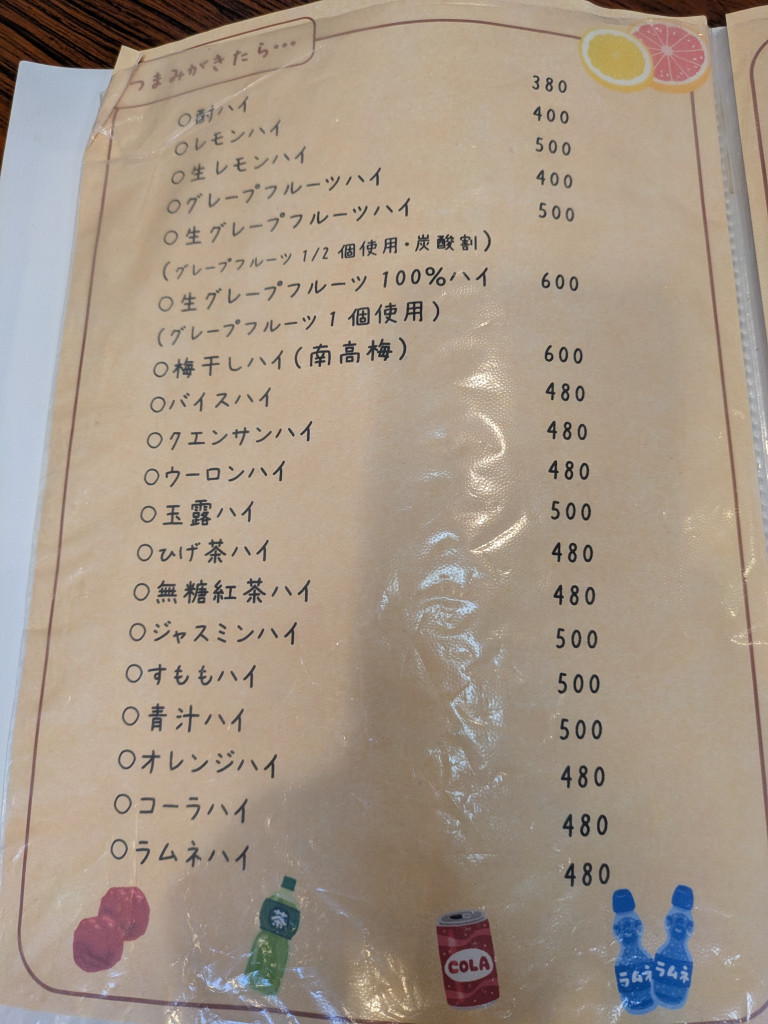 つまみがきたら…
○酎ハイ 380
○レモンハイ 400
○生レモンハイ 500
○グレープフルーツハイ 400
○生グレープフルーツハイ 500
(グレープフルーツ 1/2 個使用・炭酸割)
○生グレープフルーツ 100%ハイ 600
(グレープフルーツ 1 個使用)
○梅干しハイ(南高梅) 600
○バイスハイ 480
○クエンサンハイ 480
○ウーロンハイ 480
○玉露ハイ 500
○ひげ茶ハイ 480
○無糖紅茶ハイ 480
○ジャスミンハイ 500
○すももハイ 500
○青汁ハイ 500
○オレンジハイ 480
○コーラハイ 480
○ラムネハイ 480
茶
COLA
ラムネ
ラムネ